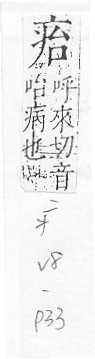 呼來切音
咍病也
v8
-
p33